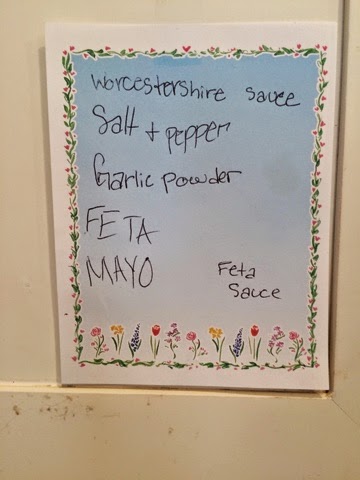 Worcestershire sauce
Salt + pepper
Garlic powder
FETA
MAYO
Feta
Sauce